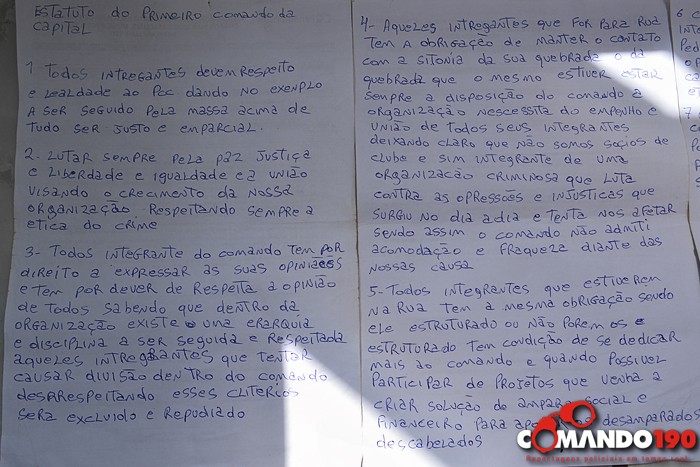 ESTATUTO DO PRIMEIRO COMANDO DA
CAPITAL
1 TODOS INTREGANTES DEVEM RESPEITO
E LEALDADE AO PCC DANDO NO EXENPLO
A SER SEGUIDO PELA MASSA ACIMA DE
TUDO SER JUSTO E EMPARCIAL.
2. LUTAR SEMPRE PELA PAZ JUSTIÇA
E LIBERDADE E IGUALDADE E A UNIÃO
VISANDO O CRECIMENTO DA NOSSA
ORGANIZAÇÃO RESPEITANDO SEMPRE A
ETICA DO CRIME
3- TODOS INTEGRANTE DO COMANDO TEM POR
DIREITO A EXPRESSAR AS SUAS OPINIÃOES
E TEM POR DEVER DE RESPEITA A OPINIÃO
DE TODOS SABENDO QUE DENTRO DA
ORGANIZAÇÃO EXISTE UMA ERARQUIA
E DISCIPLINA A SER SEGUIDA E RESPEITADA
AQUELES INTREGRANTES QUE TENTAR
CAUSAR DIVISÃO DENTRO DO COMANDO
DESRRESPEITANDO ESSES CLITERIOS
SERA EXCLUIDO E REPUDIADO
4- AQUELES INTREGANTES QUE FOR PARA RUA
TEM A OBRIGAÇÃO DE MANTER O CONTATO
COM A SITONIA DA SUA QUEBRADA O DA
QUEBRADA QUE O MESMO ESTIVER ESTAR
SEMPRE A DISPOSIÇÃO DO COMANDO A
ORGANIZAÇÃO NESCESSITA DO EMPENHO E
UNIÃO DE TODOS SEUS INTEGRANTES
DEIXANDO CLARO QUE NÃO SOMOS SOCIOS DE
CLUBE E SIM INTEGRANTE DE UMA
ORGANIZACÃO CRIMINOSA QUE LUTA
CONTRA AS OPRESSOÊS E INJUSTICAS QUE
SURGIU NO DIA ADIA E TENTA NOS AFETAR
SENDO ASSIM O COMANDO NÃO ADMITI
ACOMODAÇÃO E FRAQUEZA DIANTE DAS
NOSSAS CAUSA
5- TODOS INTEGRANTES QUE ESTIVEREM
NA RUA TEM A MESMA OBRIGAÇÃO SENDO
ELE ESTRUTURADO OU NÃO POREM OS
ESTRUTURADO TEM CONDIÇÃO DE SE DEDICAR
MAIS AO COMANDO E QUANDO POSSIVEL
PARTICIPAR DE PROJETOS QUE VENHA A
CRIAR SOLUÇÃO DE AMPARO SOCIAL E
FINANCEIRO PARA DESAMPARADOS
DESCABELADOS
COMANDO 190
Reportagens policiais em tempo real